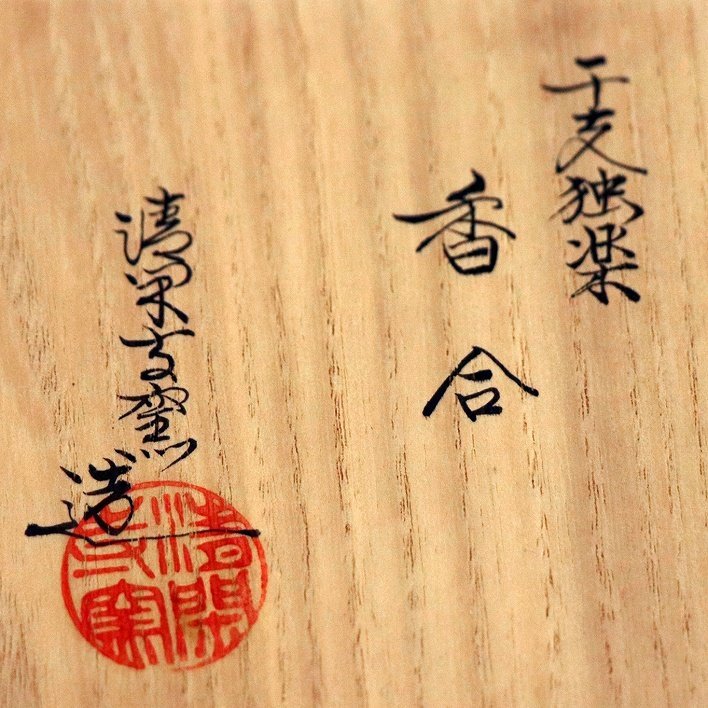 干支独楽
香合
清閑寺窯
造
清閑
寺窯